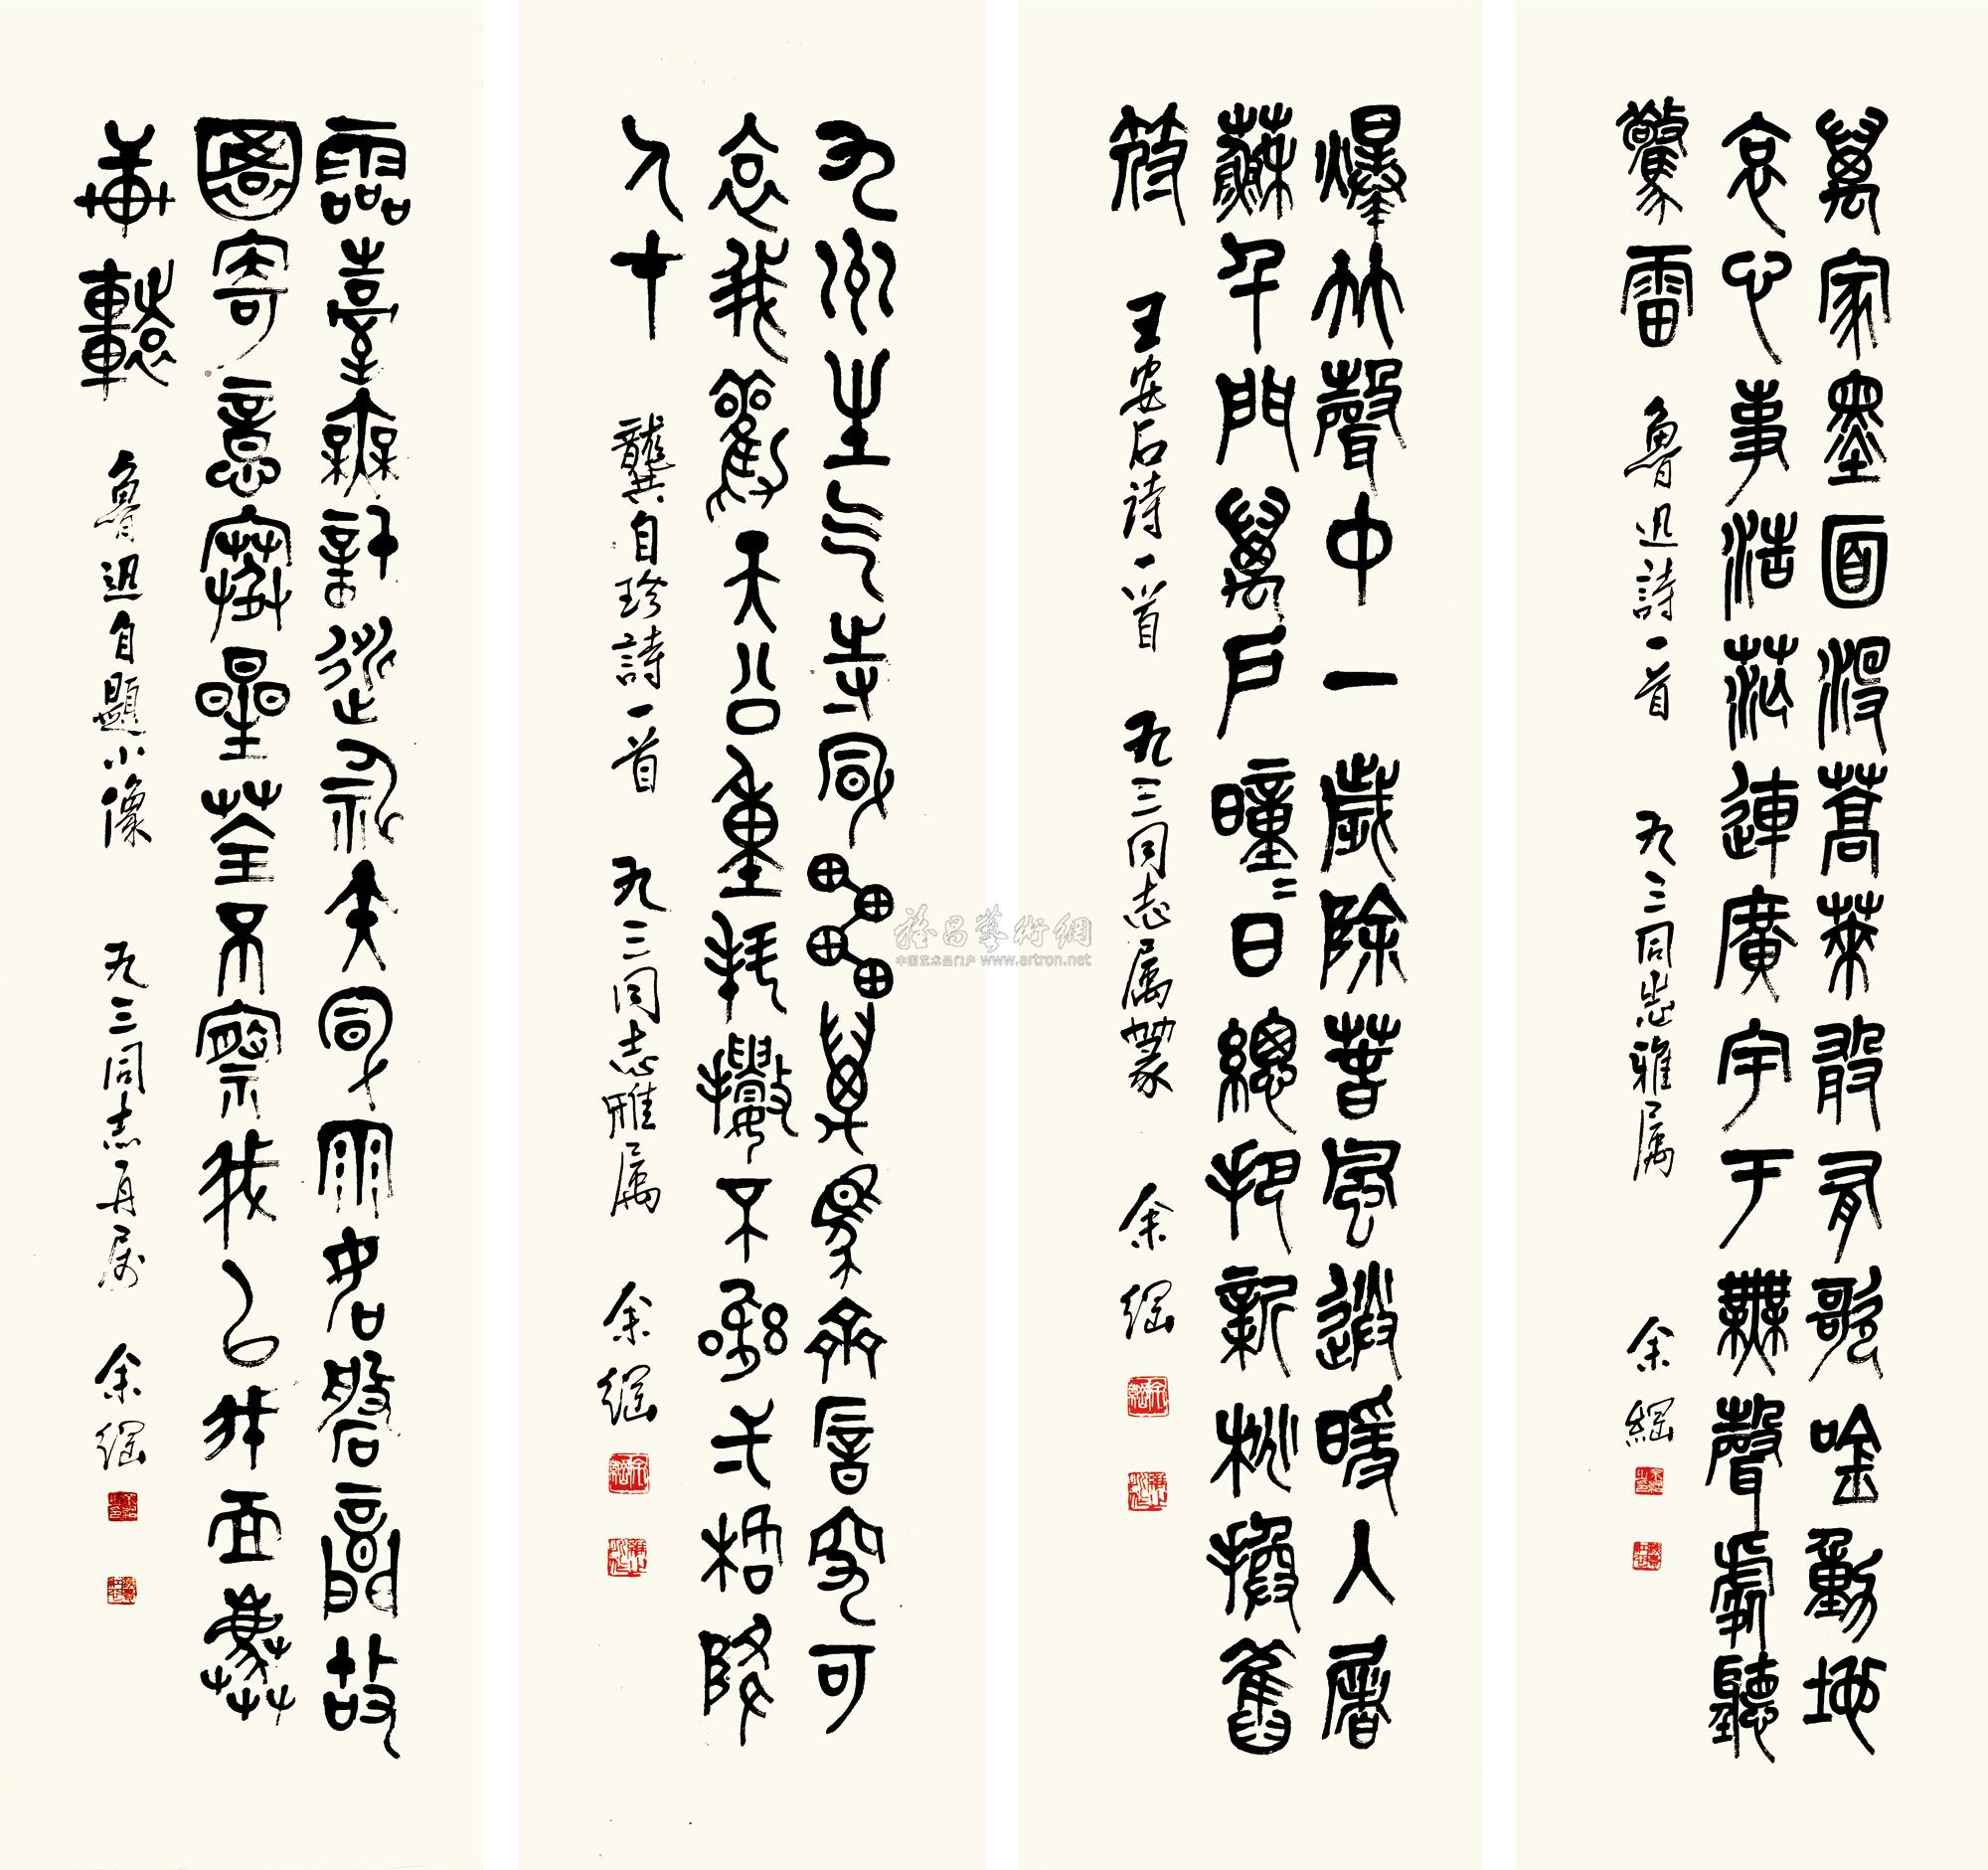 萬家墨面沒蒿萊敢有歌唫動地
哀心事浩茫連廣宇于無聲處聽
驚雷 魯迅詩一首 九三同志雅属 余綱
爆竹聲中一歲除春風送暖入屠
蘇千門萬戶曈〻日總把新桃換舊
符 王安石詩一首 九三同志属篆 余綱
九州生气恃風雷萬馬齊喑究可
哀我勸天公重抖擻不拘弌格降
人才 龔自珍詩一首 九三同志雅属 余綱
靈臺無計逃神矢風雨如磐闇故
園寄意寒星荃不察我以我血薦
軒轅 魯迅自題小像 九三同志再属 余綱
雅昌藝術網
中国艺术品门户 www.artron.net